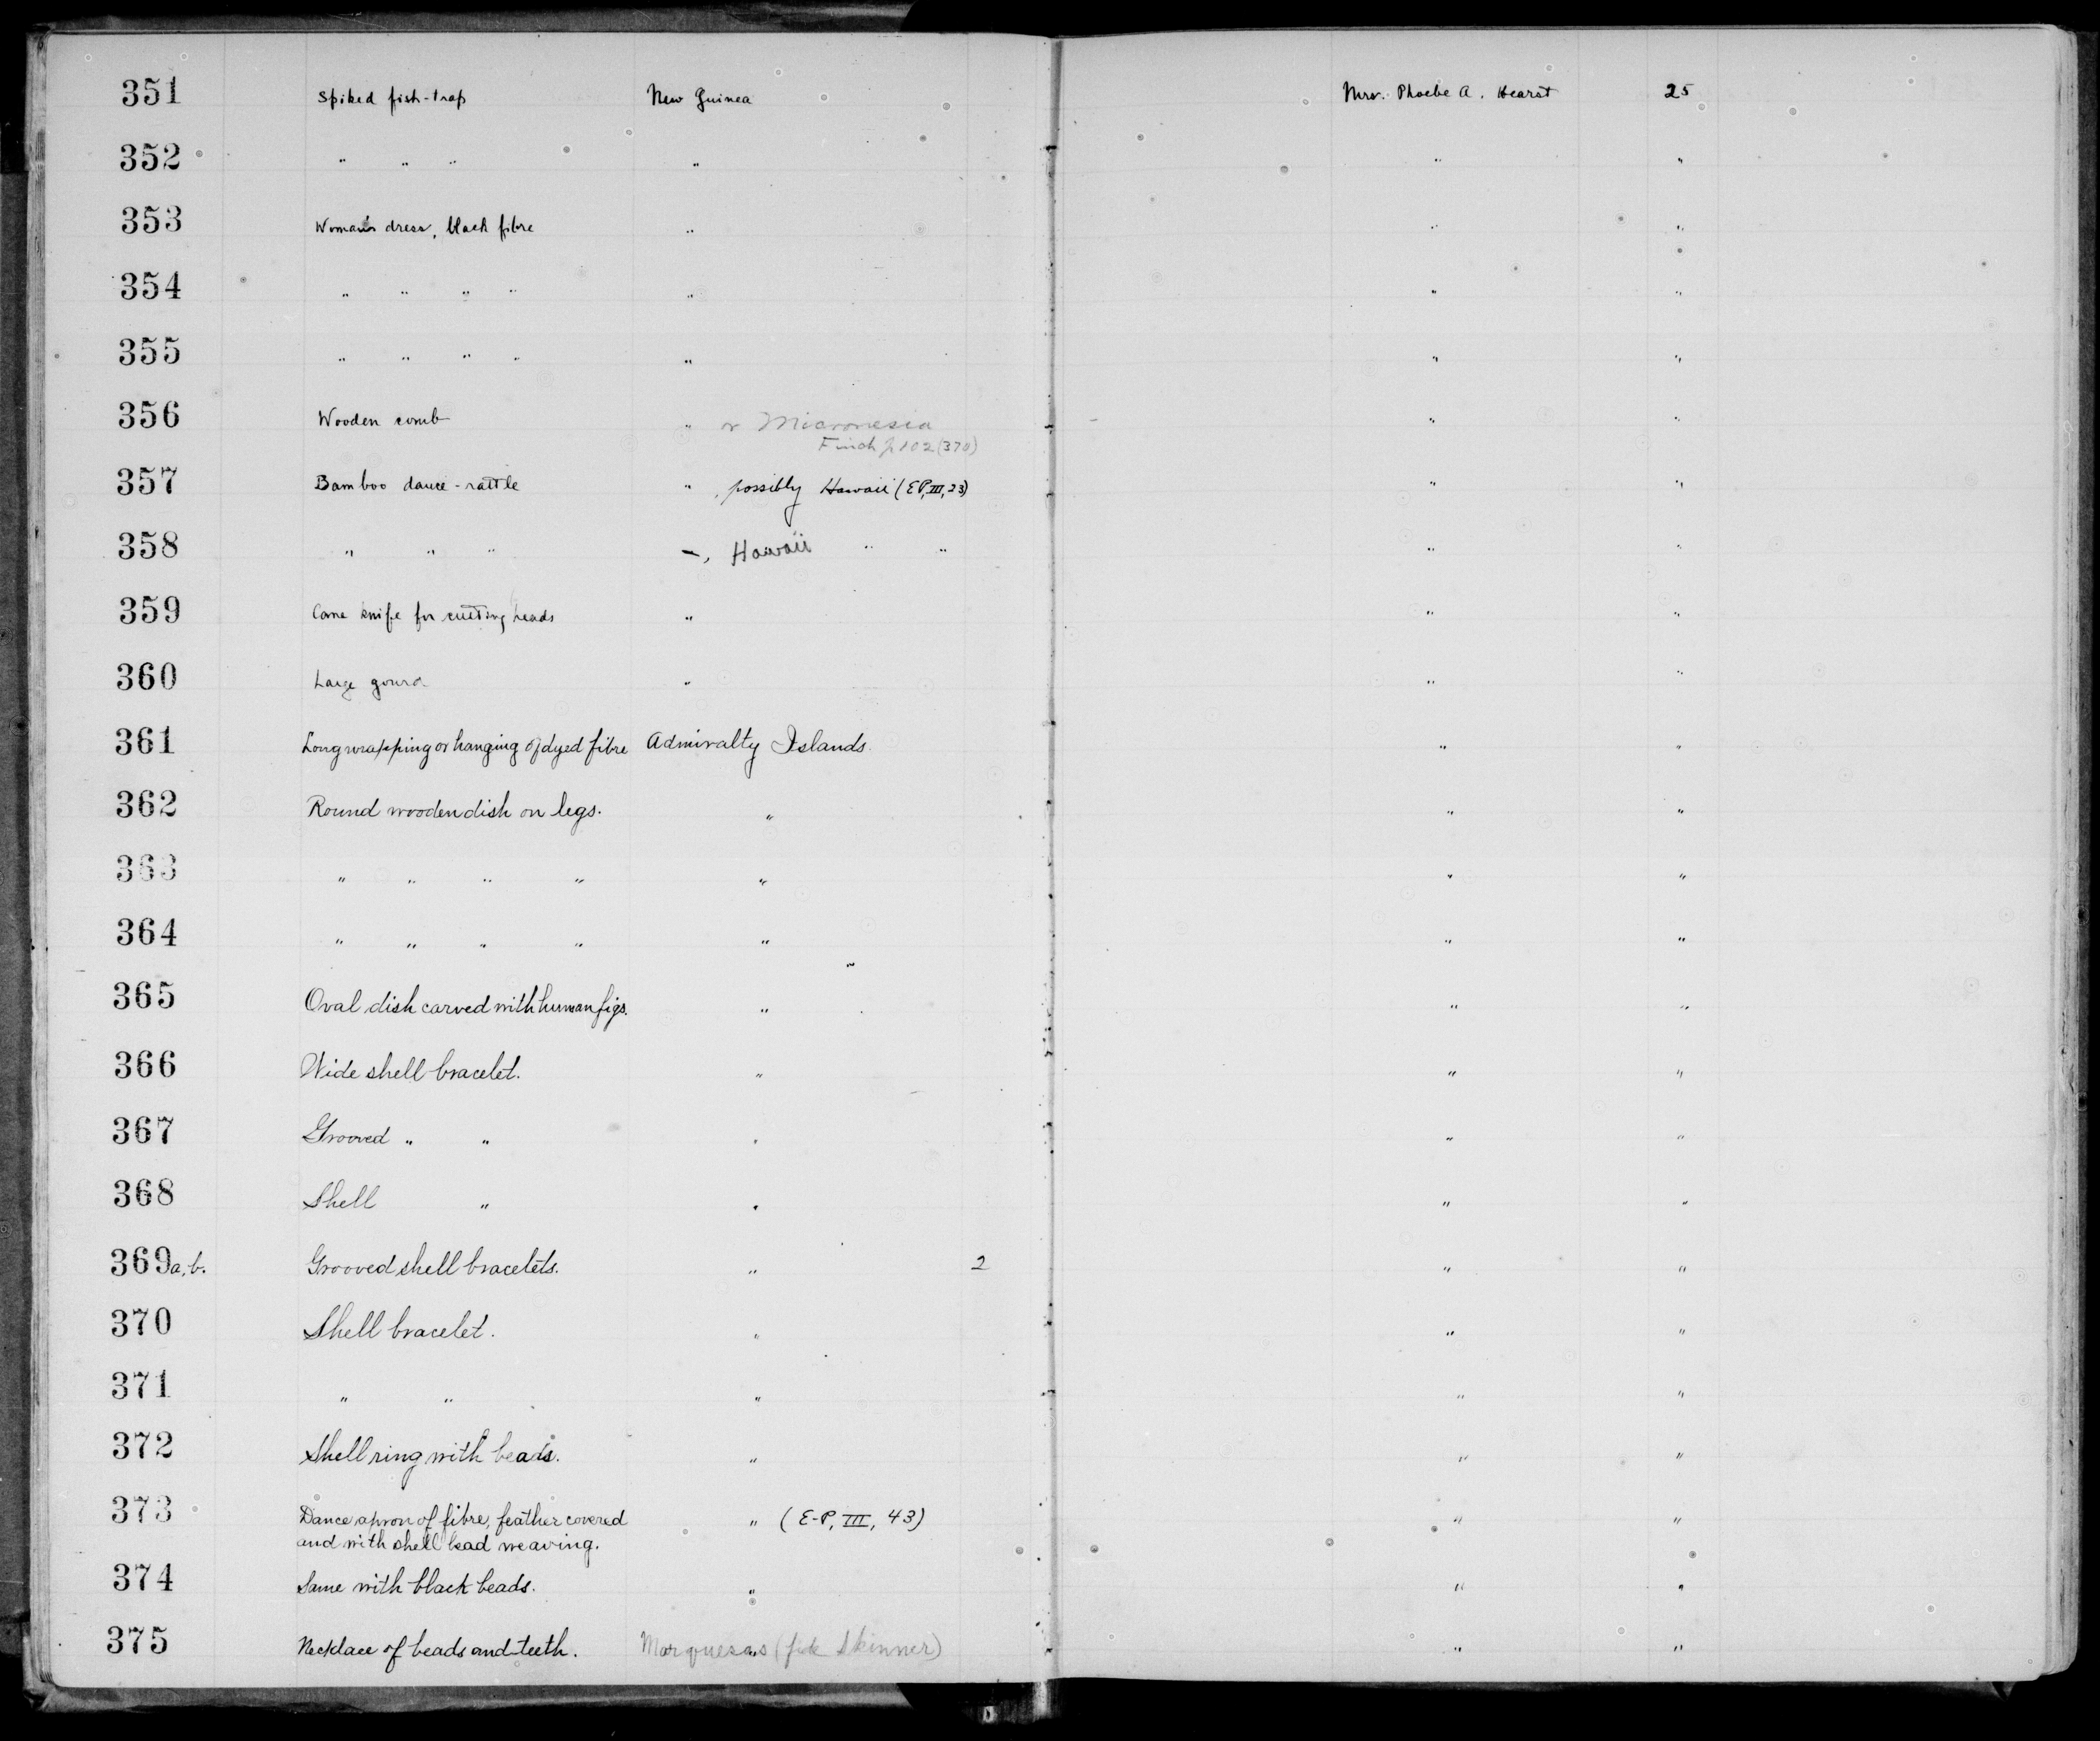 351 Spiked fish-trap New Guinea Mrs. Phoebe A. Hearst 25
352 " " " " " "
353 Woman's dress, black fibre " " "
354 " " " " " " "
355 " " " " " " "
356 Wooden comb " or Micronesia " "
Finch p 102 (370)
357 Bamboo dance-rattle " , possibly Hawaii (EP, III, 23) " "
358 " " " –, Hawaii " " " "
359 Cane knife for cutting heads " " "
360 Large gourd " " "
361 Long wrapping or hanging of dyed fibre Admiralty Islands " "
362 Round wooden dish on legs. " " "
363 " " " " " " "
364 " " " " " " "
365 Oval dish carved with human figs. " " "
366 Wide shell bracelet. " " "
367 Grooved " " " " "
368 Shell " " " "
369a,b. Grooved shell bracelets. " 2 " "
370 Shell bracelet. " " "
371 " " " " "
372 Shell ring with beads. " " "
373 Dance apron of fibre, feather covered " (E-P, III, 43) " "
and with shell bead weaving.
374 Same with black beads. " " "
375 Necklace of beads and teeth. " Marquesas (fide Skinner) " "